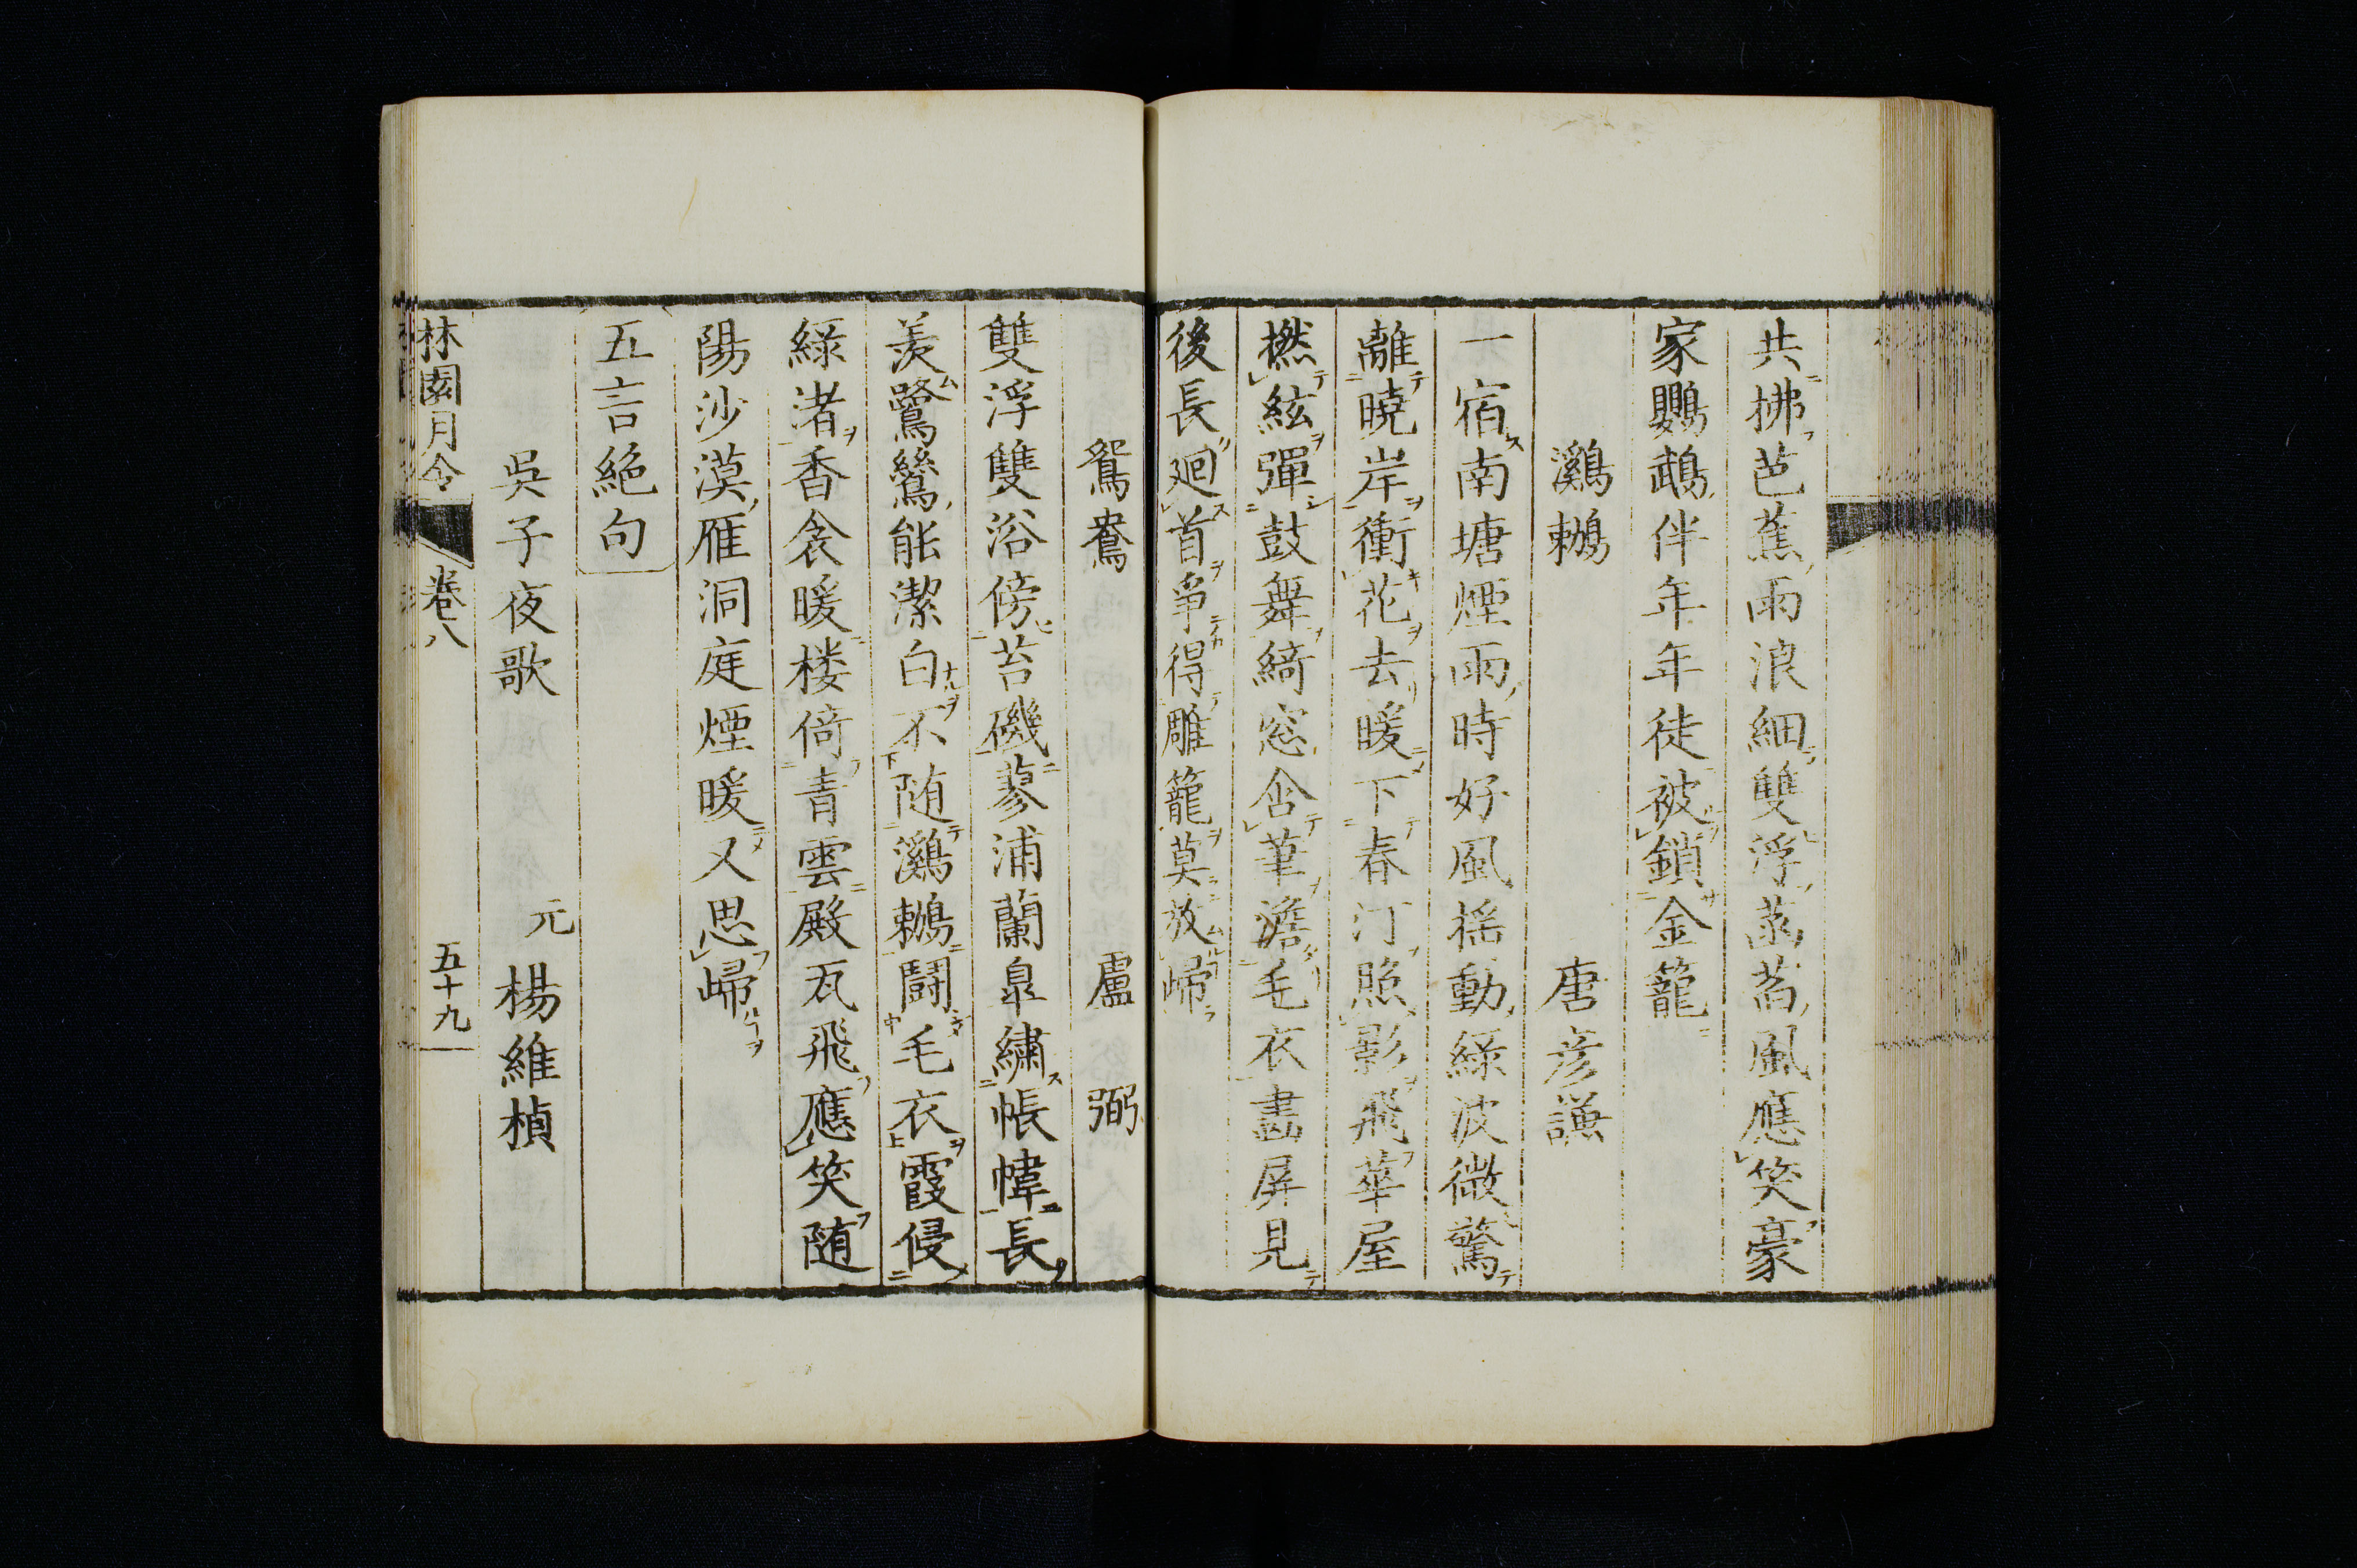 共拂芭蕉雨浪細雙浮菡萏風應笑豪
家鸚鵡伴年年徒被鎖金籠
鸂鶒 唐彦謙
一宿南塘煙雨時好風揺動緑波微驚
離曉岸衝花去暖下春汀照影飛華屋
撚絃彈鼓舞綺窓含筆澹毛衣畫屏見
後長廻首爭得雕籠莫放歸
鴛鴦 盧弼
雙浮雙浴傍苔磯蓼浦蘭皐繍帳幃長
羨鷺鷥能潔白不随鸂鶒鬪毛衣霞侵
緑渚香衾暖楼倚青雲殿瓦飛應笑随
陽沙漠雁洞庭煙暖又思歸
五言絶句
吳子夜歌 元 楊維楨
林園月令 卷八 五十九